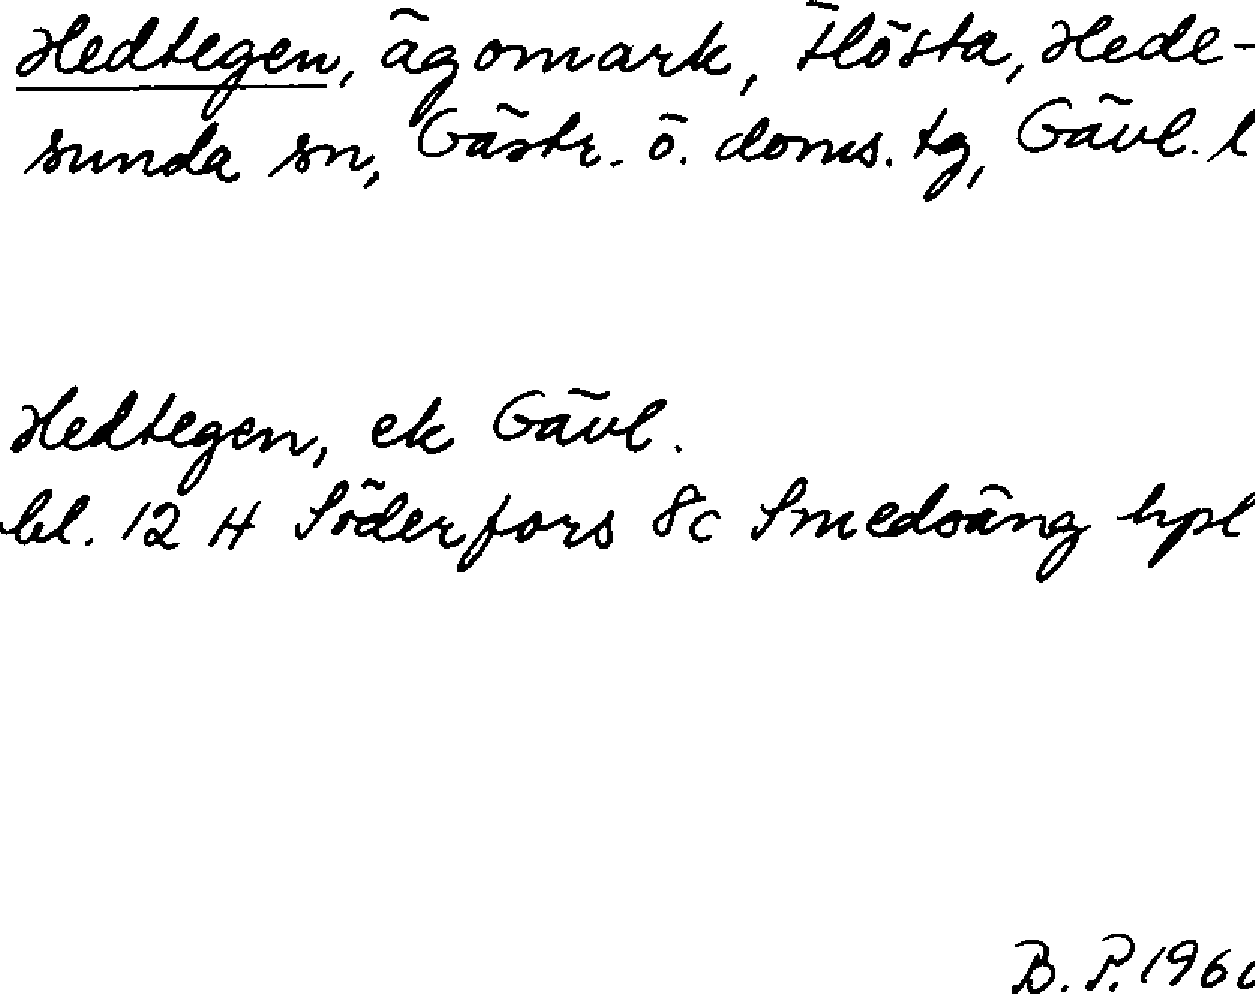 Hedtegen, ägomark, Flösta, Hede-
sunda sn, Gästr. ö. doms. tg, Gävl. l
Hedtegen, ek Gävl.
bl. 12 H Söderfors 8c Smedsäng hpl
B. P. 196